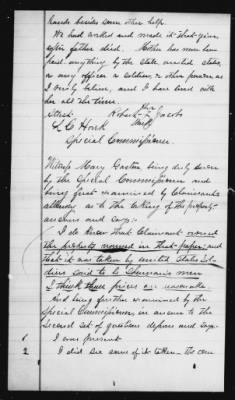 hands besides some other help.
We had worked and made it that year,
after father died. Mother has never been
paid anything by the state, united states,
or any officer or soldier, or other person, as
I verily believe, and I have lived with
her all the time.
Attest. Robert his Jacobs
mark
S. C. Houk
Special Commissioner.
Witness Mary Gaston being duly sworn
by the Special Commissioner and
being first examined by Claimants
attorney as to the taking of the property
answers and says:
I do know that Claimant owned
the property named in that paper; and
that it was taken by united States Sol-
diers said to be Shermans men
I think those prices are reasonable
And being further examined by the
Special Commissioner, in answer to the
second set of questions deposes and says:
1 I was present
2 I did see some of it taken. The corn